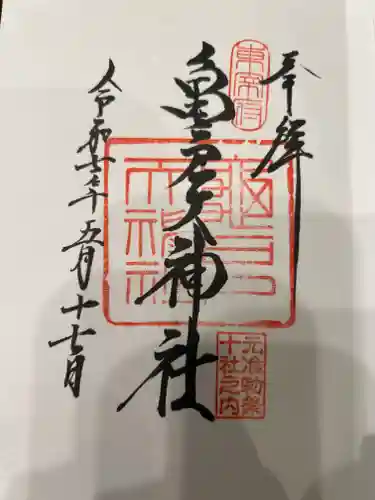 奉拝
東宰府
亀戸天神社
亀戸
天神社
元准勅祭
十社之内
令和七年五月十七日